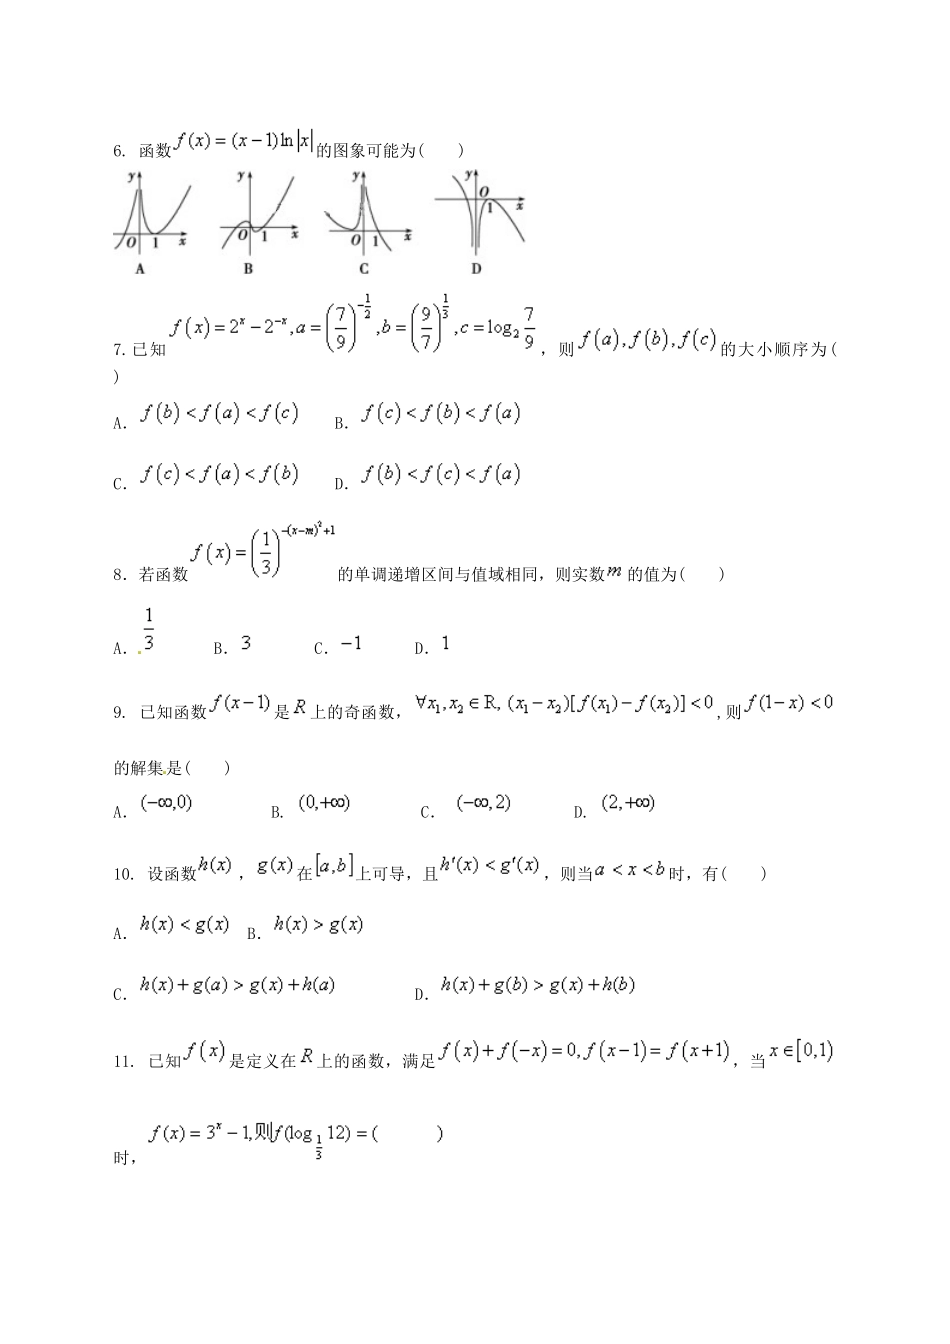 6. 函数f(x)=(x-1)ln|x|的图象可能为(    )
y y y y
O 1 x O 1 x O 1 x O 1 x
A B C D
7.已知f(x)=2^x-2^{-x},a=(7/9)^{-1/2},b=(9/7)^{1/3},c=log_2 7/9，则f(a),f(b),f(c)的大小顺序为(
)
A. f(b)<f(a)<f(c) B. f(c)<f(b)<f(a)
C. f(c)<f(a)<f(b) D. f(b)<f(c)<f(a)
8. 若函数f(x)=(1/3)^{-(x-m)^2+1}的单调递增区间与值域相同，则实数m的值为(    )
A. 1/3 B. 3 C. -1 D. 1
9. 已知函数f(x-1)是R上的奇函数，∀x_1,x_2∈R,(x_1-x_2)[f(x_1)-f(x_2)]<0,则f(1-x)<0
的解集是(    )
A. (-∞,0) B. (0,+∞) C. (-∞,2) D. (2,+∞)
10. 设函数h(x)，g(x)在[a,b]上可导，且h'(x)<g'(x)，则当a<x<b时，有(    )
A. h(x)<g(x) B. h(x)>g(x)
C. h(x)+g(a)>g(x)+h(a) D. h(x)+g(b)>g(x)+h(b)
11. 已知f(x)是定义在R上的函数，满足f(x)+f(-x)=0,f(x-1)=f(x+1)，当x∈[0,1)
时，f(x)=3^x-1,则f(log_{1/3}12)=(    )